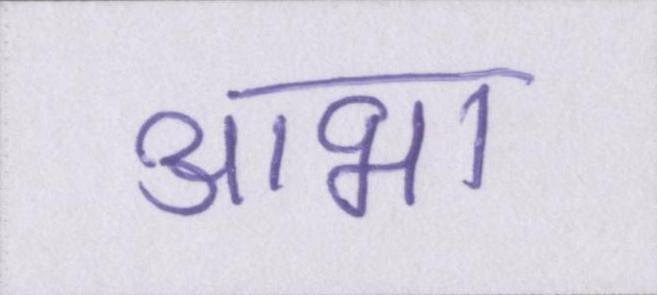 आभा